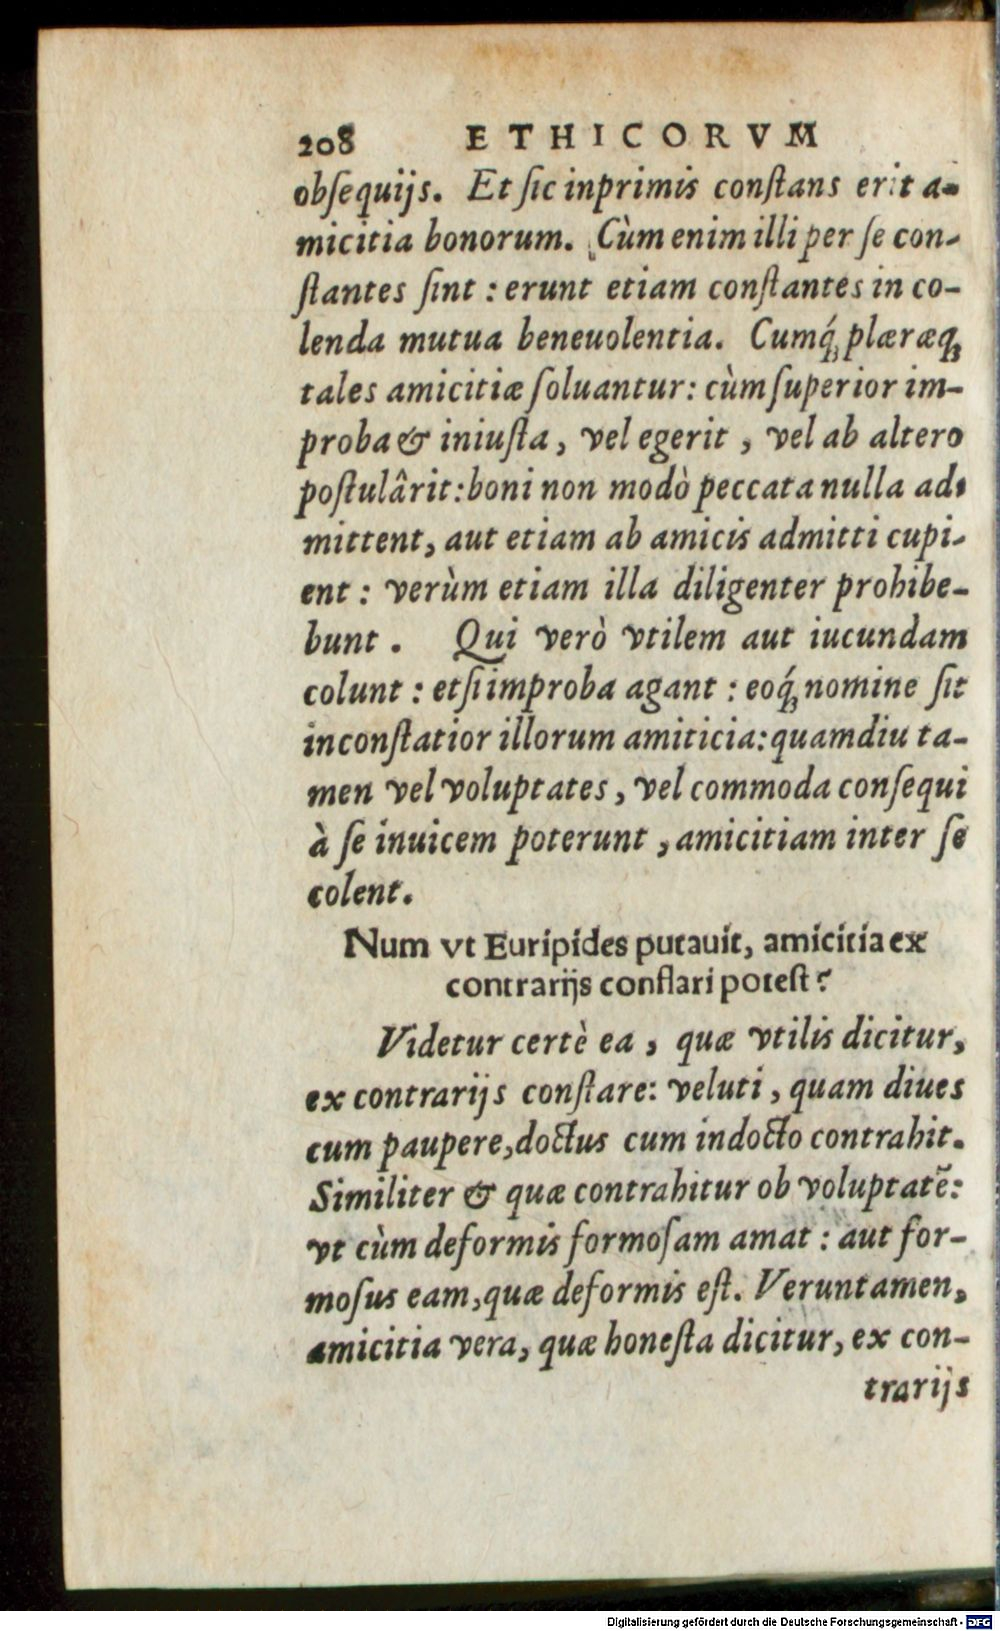 208 ETHICORVM
obſequijs. Et ſic inprimis conſtans erit a-
micitia bonorum. Cùm enim illi per ſe con-
ſtantes ſint : erunt etiam conſtantes in co-
lenda mutua beneuolentia. Cumq́ꝫ plæræqꝫ
tales amicitiæ ſoluantur: cùm ſuperior im-
proba & iniuſta, vel egerit, vel ab altero
poſtulârit: boni non modò peccata nulla ad-
mittent, aut etiam ab amicis admitti cupi-
ent : verùm etiam illa diligenter prohibe-
bunt. Qui verò vtilem aut iucundam
colunt : etſi improba agant : eoq́ꝫ nomine ſit
inconſtatior illorum amiticia: quamdiu ta-
men vel voluptates, vel commoda conſequi
à ſe inuicem poterunt, amicitiam inter ſe
colent.
Num vt Euripides putauit, amicitia ex
contrarijs conflari poteſt?
Videtur certè ea, quæ vtilis dicitur,
ex contrarijs conſtare: veluti, quam diues
cum paupere, doctus cum indocto contrahit.
Similiter & quæ contrahitur ob voluptatē:
vt cùm deformis formoſam amat : aut for-
moſus eam, quæ deformis eſt. Veruntamen,
amicitia vera, quæ honeſta dicitur, ex con-
trarijs
Digitalisierung gefördert durch die Deutsche Forschungsgemeinschaft - DFG